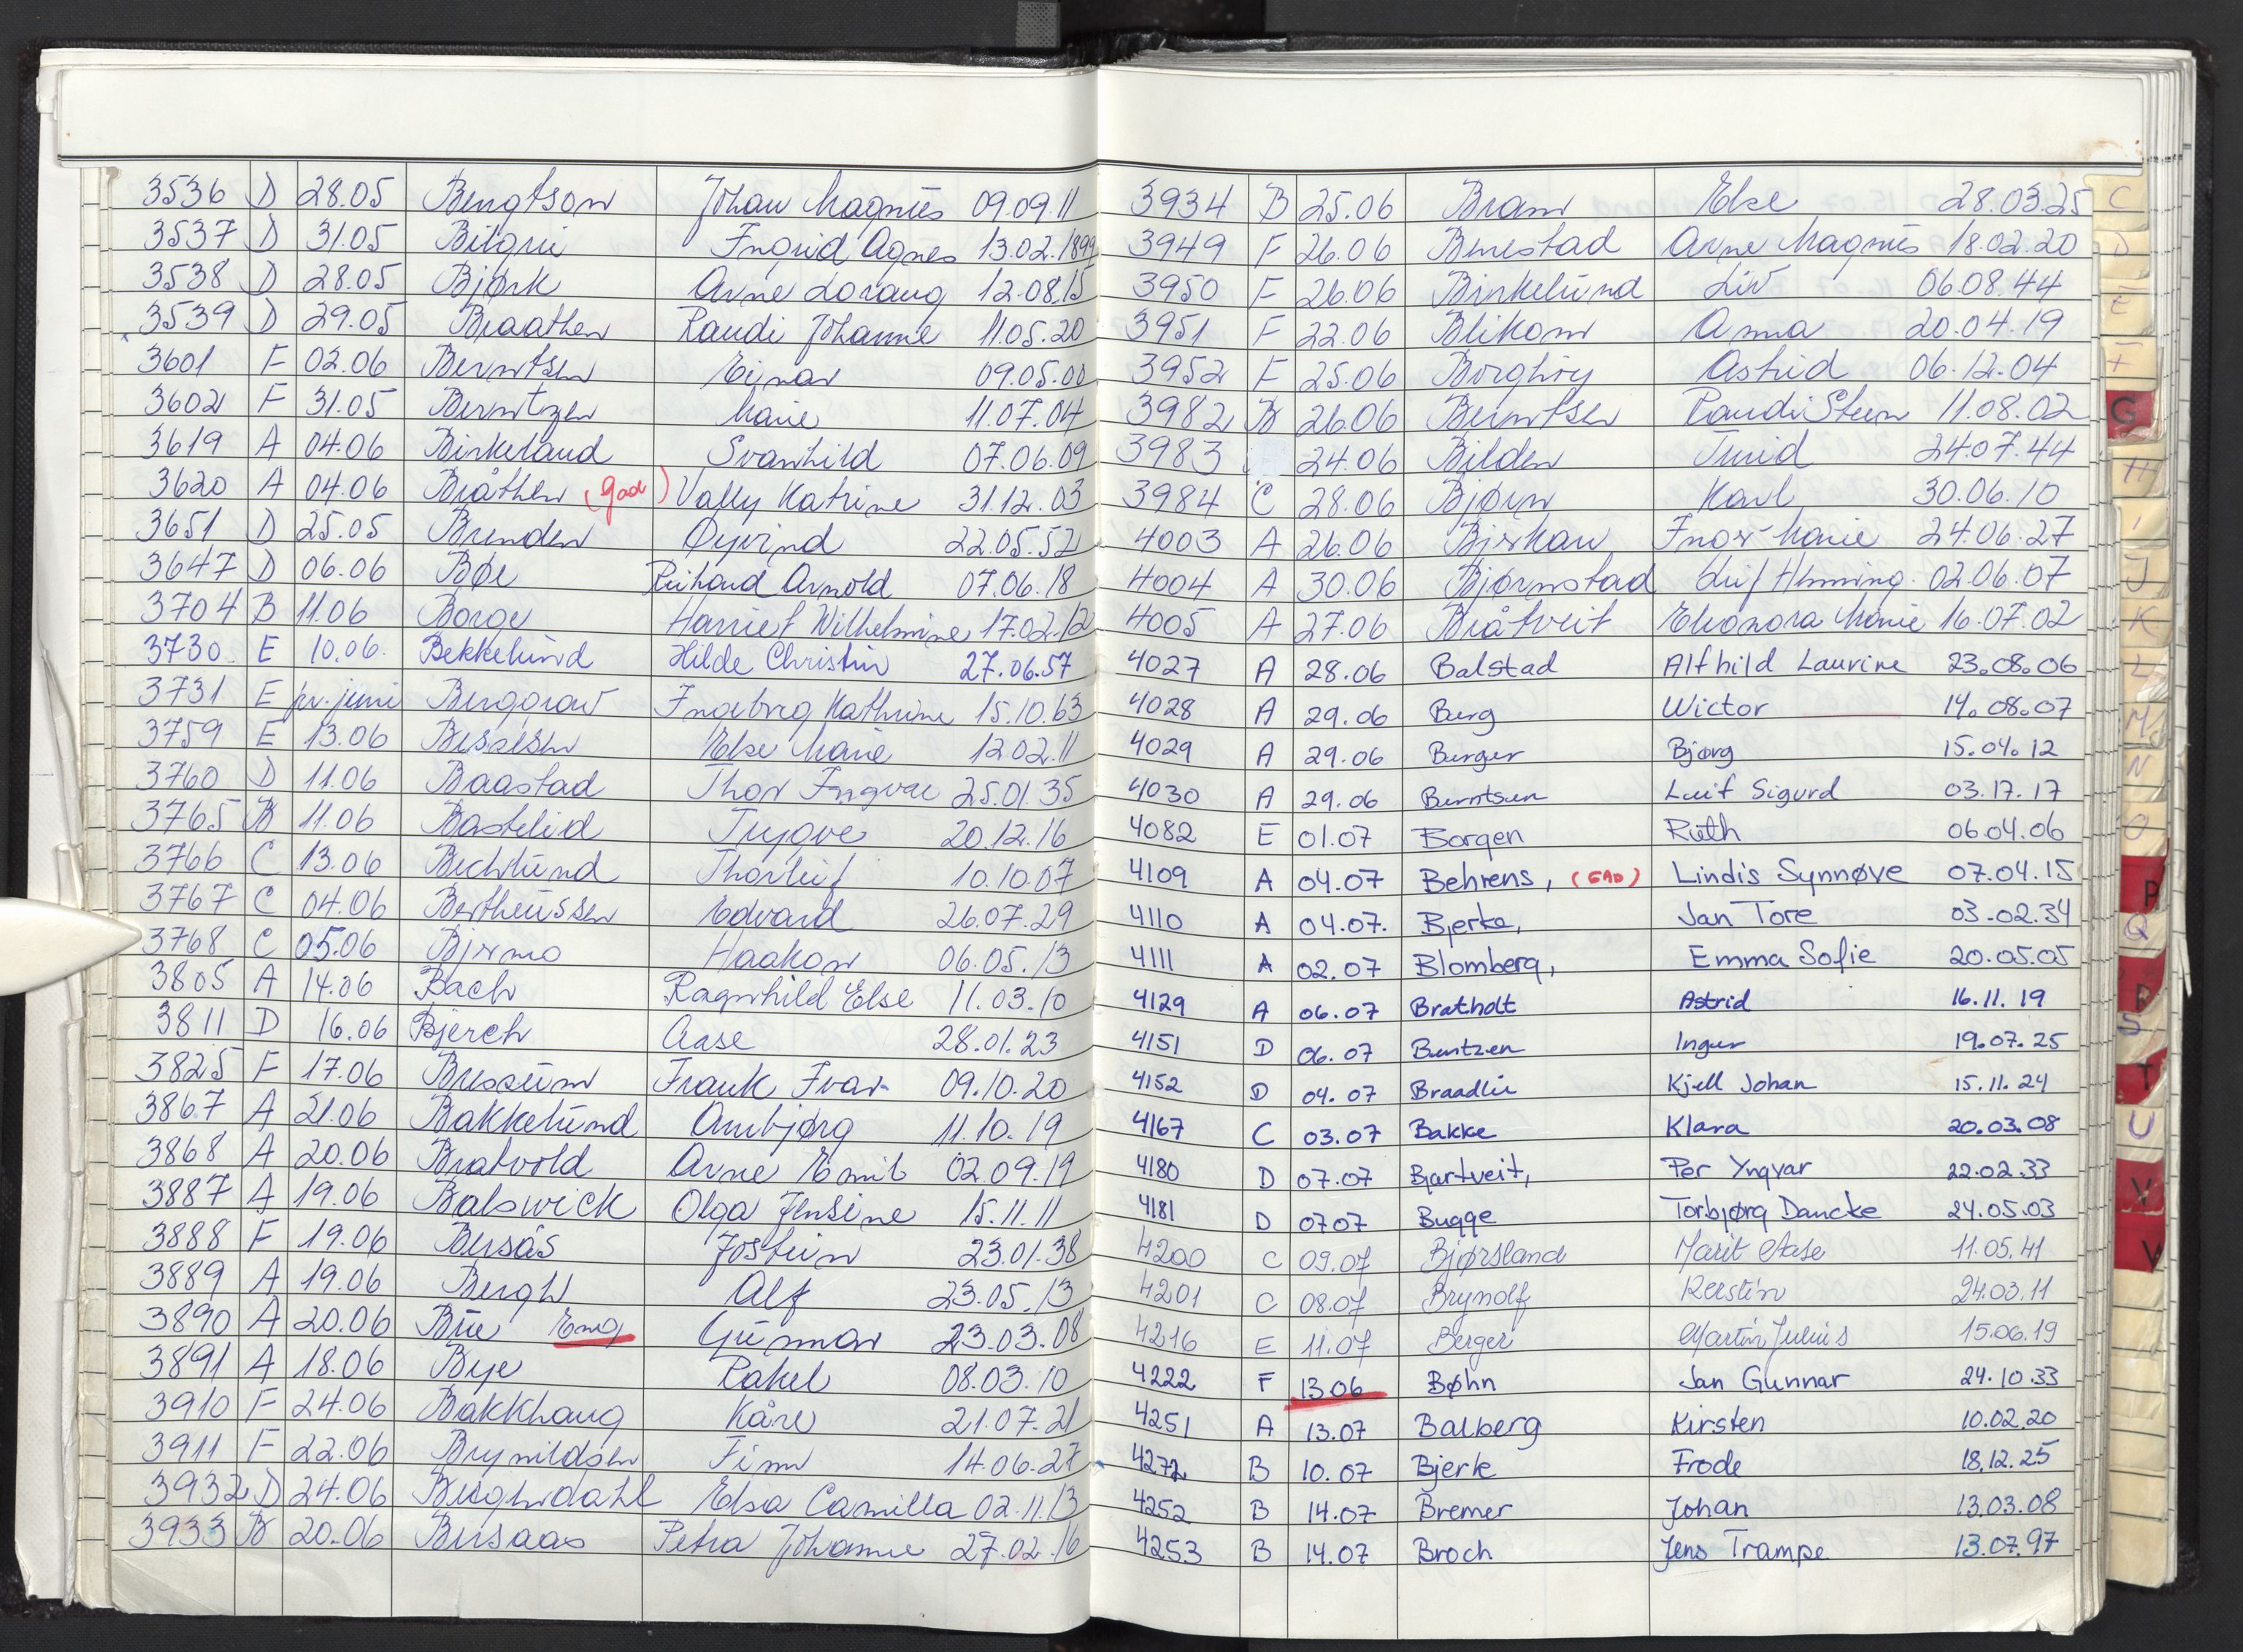 3536 D 28.05 Bengtson Johan Magnus 09.09.11
3537 D 31.05 Bitgrii Ingrid Agnes 13.02.1899
3538 D 28.05 Bjørk Arne Loraug 12.08.15
3539 D 29.05 Braathen Randi Johanne 11.05.20
3601 F 02.06 Berntsen Einar 09.05.00
3602 F 31.05 Berntzen Marie 11.07.04
3619 A 04.06 Birkeland Svanhild 07.06.09
3620 A 04.06 Bråthen (gad) Vally Katrine 31.12.03
3651 D 25.05 Brenden Øyvind 22.05.52
3647 D 06.06 Bøe Richard Arnold 07.06.18
3704 B 11.06 Borge Harriet Wilhelmine 17.02.12
3730 E 10.06. Bekkelund Hilde Christin 27.06.57
3731 E pr. juni Berggrav Ingeborg Kathrine 15.10.63
3759 E 13.06 Bessesen Else Marie 12.02.11
3760 D 11.06 Baastad Thor Ingvar 25.01.35
3765 B 11.06 Bastelid Trygve 20.12.16
3766 C 13.06 Bechlund Thorleif 10.10.07
3767 C 04.06 Bertheussen Edvard 26.07.29
3768 C 05.06 Bjermo Haakon 06.05.13
3805 A 14.06 Bach Ragnhild Else 11.03.10
3811 D 16.06 Bjerch Aase 28.01.23
3825 F 17.06 Bressum Frank Ivar 09.10.20
3867 A 21.06 Bakkelund Annbjørg 11.10.19
3868 A 20.06 Bratvold Arne Emil 02.09.19
3887 A 19.06 Balswick Olga Jensine 15.11.11
3888 F 19.06 Bersås Jostein 23.01.38
3889 A 19.06 Bergh Alf 23.05.13
3890 A 20.06 Bue Eng Gunnar 23.03.08
3891 A 18.06 Bye Rakel 08.03.10
3910 F 24.06 Bakkhaug Kåre 21.07.21
3911 F 22.06 Brynildsen Finn 14.06.27
3932 D 24.06 Berghrdahl Elsa Camilla 02.11.13
3933 B 20.06 Bersaas Petra Johanne 27.02.16
3934 B 25.06 Bram Else 28.03.25
3949 F 26.06 Benestad Arne Magnus 18.02.20
3950 F 26.06 Birkelund Liv 06.08.44
3951 F 22.06 Blikom Anna 20.04.19
3952 F 25.06 Borghøy Astrid 06.12.04
3982 B 26.06 Berntsen Randi Steen 11.08.02
3983 24.06 Bilden Turid 24.07.44
3984 C 28.06 Bjørn Karl 30.06.10
4003 A 26.06 Bjerkan Inor-Marie 24.06.27
4004 A 30.06 Bjørnstad Leif Henning. 02.06.07
4005 A 27.06 Bråtveit Eleonora Marie 16.07.02
4027 A 28.06 Balstad Alfhild Laurine 23.08.06
4028 A 29.06 Berg Wictor 14.08.07
4029 A 29.06 Berger Bjørg 15.04.12
4030 A 29.06 Berntsen Leif Sigurd 03.17.17
4082 E 01.07 Borgen Ruth 06.04.06
4109 A 04.07 Behrens, (GAD) Lindis Synnøve 07.04.15
4110 A 04.07. Bjerke, Jan Tore 03.02.34
4111 A 02.07 Blomberg, Emma Sofie 20.05.05
4129 A 06.07 Bratholt Astrid 16.11.19
4151 D 06.07 Berntzen Inger 19.07.25
4152 D 04.07 Braadlie Kjell Johan 15.11.24
4167 C 03.07 Bakke Klara 20.03.08
4180 D 07.07 Bjartveit, Per Yngvar 22.02.33
4181 D 07.07 Bugge Torbjørg Dancke 24.05.03
4200 C 09.07 Bjørsland Marit Aase 11.05.41
4201 C 08.07 Brynolf Kerstin 24.03.11
4216 E 11.07 Berger Martin Julius 15.06.19
4222 F 13.06 Bøhn Jan Gunnar 24.10.33
4251 A 13.07 Balberg Kirsten 10.02.20
4272 B 10.07 Bjerk Frode 18.12.25
4252 B 14.07 Bremer Johan 13.03.08
4253 B 14.07 Broch Jens Trampe 13.07.97
C
D
E
F
G
H
I
J
K
L
M
N
O
P
Q
R
S
T
U
V